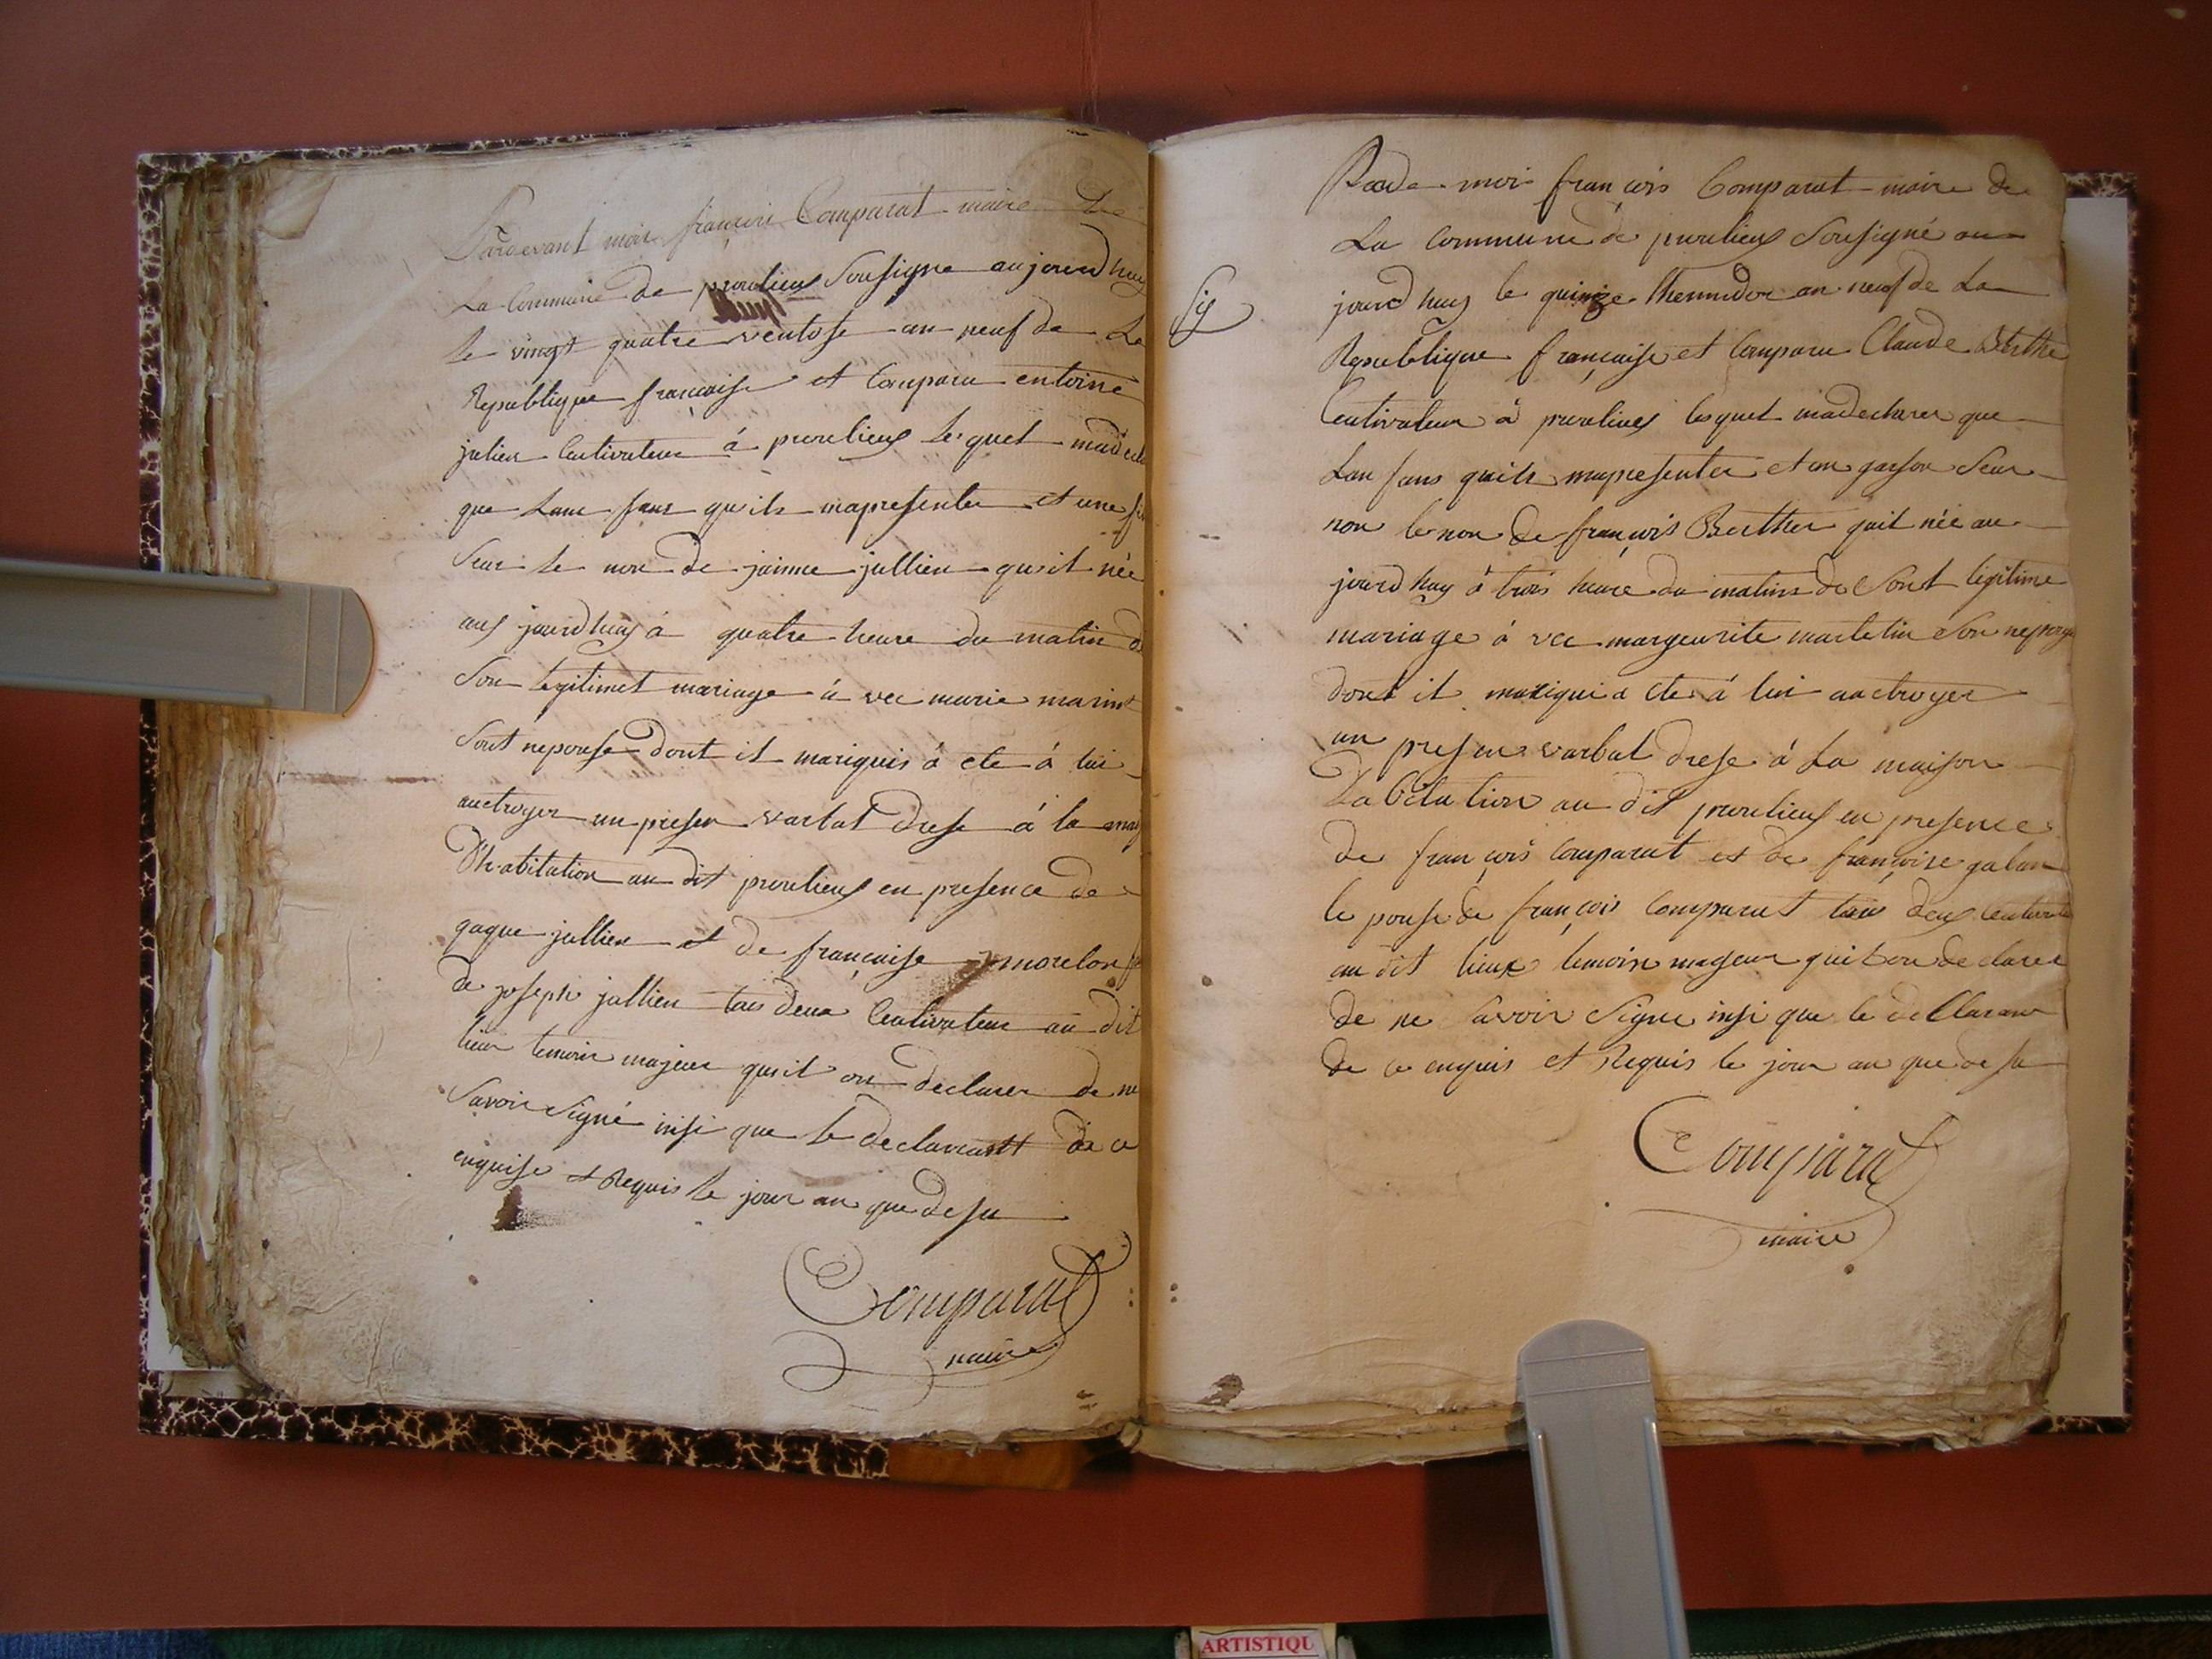 Pardevant moi françois Comparat maire De
La Commune de proulieux Sousigne aujourdhuy
le vingt quatre ventose an neuf de La
Republique francaise et Comparu entoine
julien Cultivateur à proulieux le quel
que Lan fans quils mapresenter et une
Seur le non de jainne jullien quit née
aus jourdhuy à quatre heure du matin
Son legitimet mariage à vec marie
Sont nepouse dont il mariquis à ete à lui
auctroyer un presen varbal drese à la
D'habitation au dit proulieux en presence de
gaque jullien et de francaise morelon
de joseph jullien tous deux Cultivateur au dit
lieux temoin majeur quit on declarer de ne
Savoir Signé insi que le declarantt de ce
enquise et Requis le jour an que desu
Comparat
maire
Parde moi françois Comparat maire de
La Commune de proulieux Sousigné au
jourdhuy le quinze thermidor an neuf de La
Republique française et Comparu Claude Berthe
Cultivateur à proulieux lequel madeclarer que
Lan fans quils mapresenter et un garson Seur
non le non de françois Berthet quit née au
jourdhuy à trois heure du matins de Sont legitime
mariage à vec margeurite martetin Son
dont il mariquis a ete à lui auctroyer
un presen varbal drese à La maison
Dabitation au dit proulieux en presence
de françois Comparat et de françoise galan
le pouse de françois Comparat tous deux
au dit lieux temoin mageur quit on declarer
de ne Savoir Signe insi que le declaran
de ce enquis et Requis le jour an que desu
Comparat
maire
ARTISTIQU